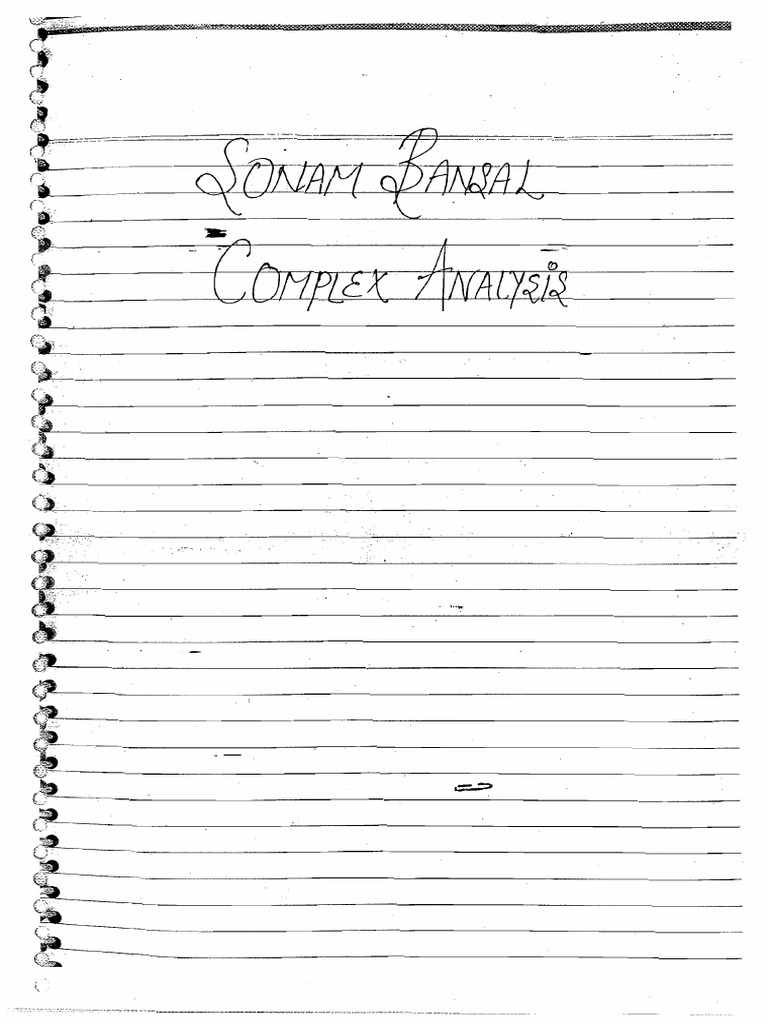 SONAM BANSAL
COMPLEX ANALYSIS